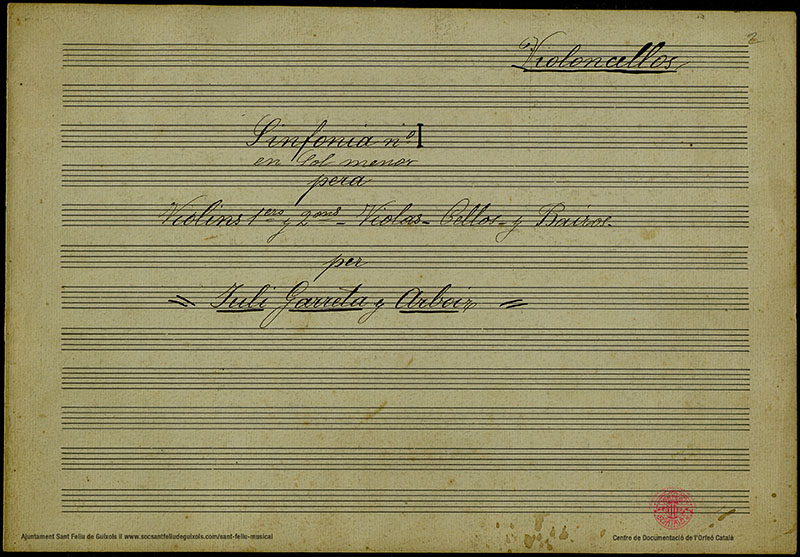 2
Violoncellos
Sinfonia nº I
en Sol menor
pera
Violins 1ers y 2ons - Violas - Cellos - y Baixos -
per
= Juli Garreta y Arboix =
Ajuntament Sant Feliu de Guíxols // www.socsantfeliudeguixols.com/sant-feliu-musical
Centre de Documentació de l'Orfeó Català